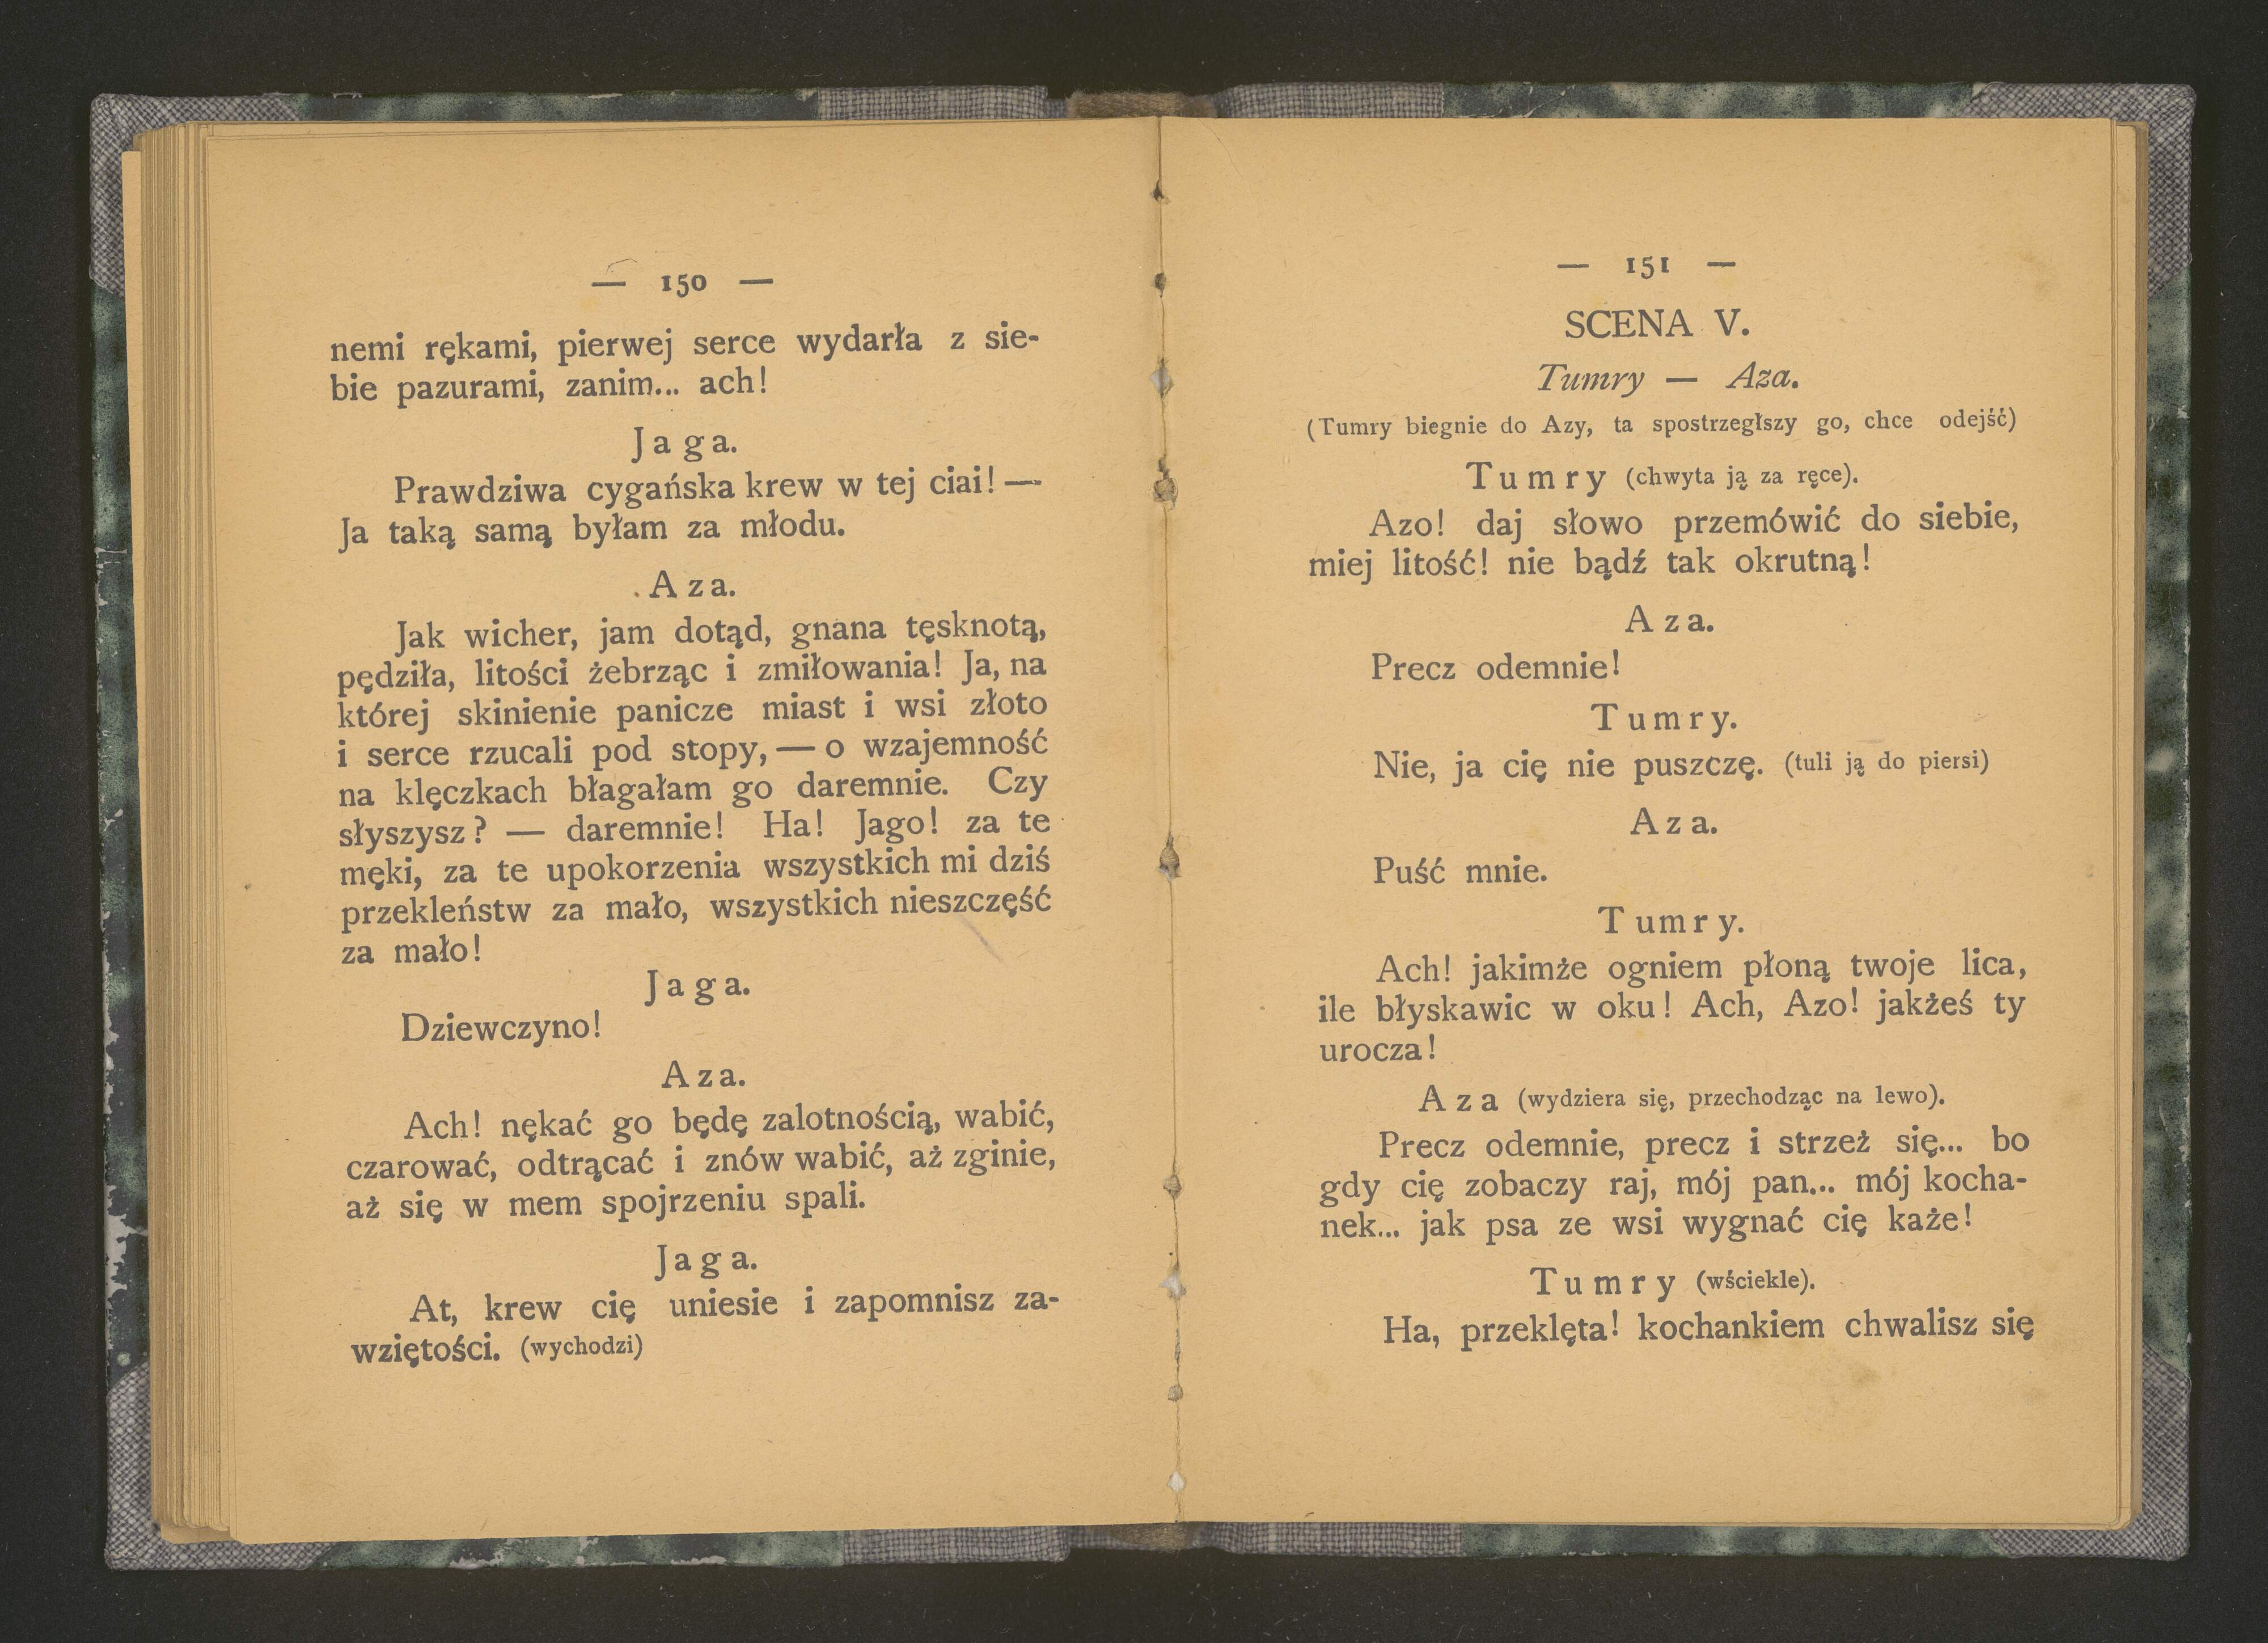 — 150 —
nemi rękami, pierwej serce wydarła z sie-
bie pazurami, zanim... ach!
Jaga.
Prawdziwa cygańska krew w tej ciai! —
Ja taką samą byłam za młodu.
Aza.
Jak wicher, jam dotąd, gnana tęsknotą,
pędziła, litości żebrząc i zmiłowania! Ja, na
której skinienie panicze miast i wsi złoto
i serce rzucali pod stopy, — o wzajemność
na klęczkach błagałam go daremnie. Czy
słyszysz? — daremnie! Ha! Jago! za te
męki, za te upokorzenia wszystkich mi dziś
przekleństw za mało, wszystkich nieszczęść
za mało!
Jaga.
Dziewczyno!
Aza.
Ach! nękać go będę zalotnością, wabić,
czarować, odtrącać i znów wabić, aż zginie,
aż się w mem spojrzeniu spali.
Jaga.
At, krew cię uniesie i zapomnisz za-
wziętości. (wychodzi)
— 151 —
SCENA V.
Tumry — Aza.
(Tumry biegnie do Azy, ta spostrzegłszy go, chce odejść)
Tumry (chwyta ją za ręce).
Azo! daj słowo przemówić do siebie,
miej litość! nie bądź tak okrutną!
Aza.
Precz odemnie!
Tumry.
Nie, ja cię nie puszczę. (tuli ją do piersi)
Aza.
Puść mnie.
Tumry.
Ach! jakimże ogniem płoną twoje lica,
ile błyskawic w oku! Ach, Azo! jakżeś ty
urocza!
Aza (wydziera się, przechodząc na lewo).
Precz odemnie, precz i strzeż się... bo
gdy cię zobaczy raj, mój pan... mój kocha-
nek... jak psa ze wsi wygnać cię każe!
Tumry (wściekle).
Ha, przeklęta! kochankiem chwalisz się